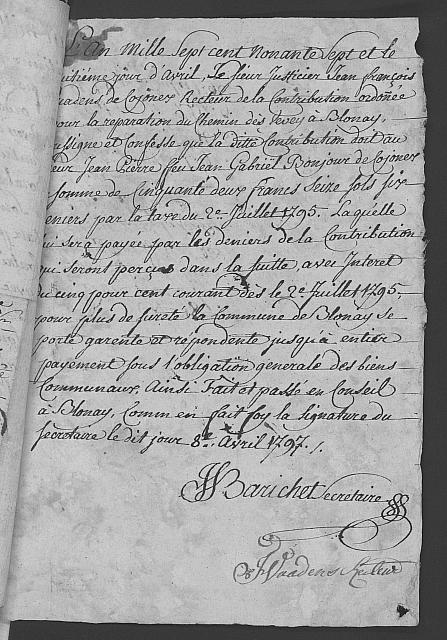 L'An Mille Sept cent Nonante Sept et le
huitième jour d'Avril, Le sieur Justicier Jean François
adens de Cojonex Recteur de la Contribution ordonée
pour la reparation du Chemin dès Vevey à Blonay,
assigne et Confesse que la ditte Contribution doit au
sieur Jean Pierre ffeu Jean Gabriel Bonjour de Cojonex
somme de Cinquante deux francs Seize sols six
deniers par la taxe du 2e. Juillet 1795. Laquelle
qui sera payée par les deniers de la Contribution
qui seront perçus dans la suitte, avec Interet
du cinq pour cent courant dès le 2e. Juillet 1795,
pour plus de sureté la Commune de Blonay se
porte garente et répondente jusqu'à entier
payement sous l'obligation generale des biens
Communaux, Ainsi Fait et passé en Conseil
à Blonay, Comm en fait foy la signature du
secretaire le dit jour 8e. Avril 1797./.
Barichet Secretaire